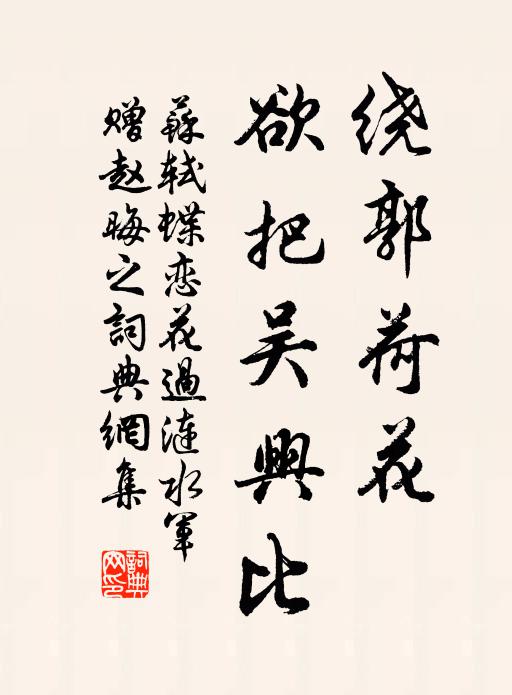 绕郭荷花
欲把吴興比
蘇軾蝶恋花過漣水軍
赠赵晦之詞典網集
詞典网印